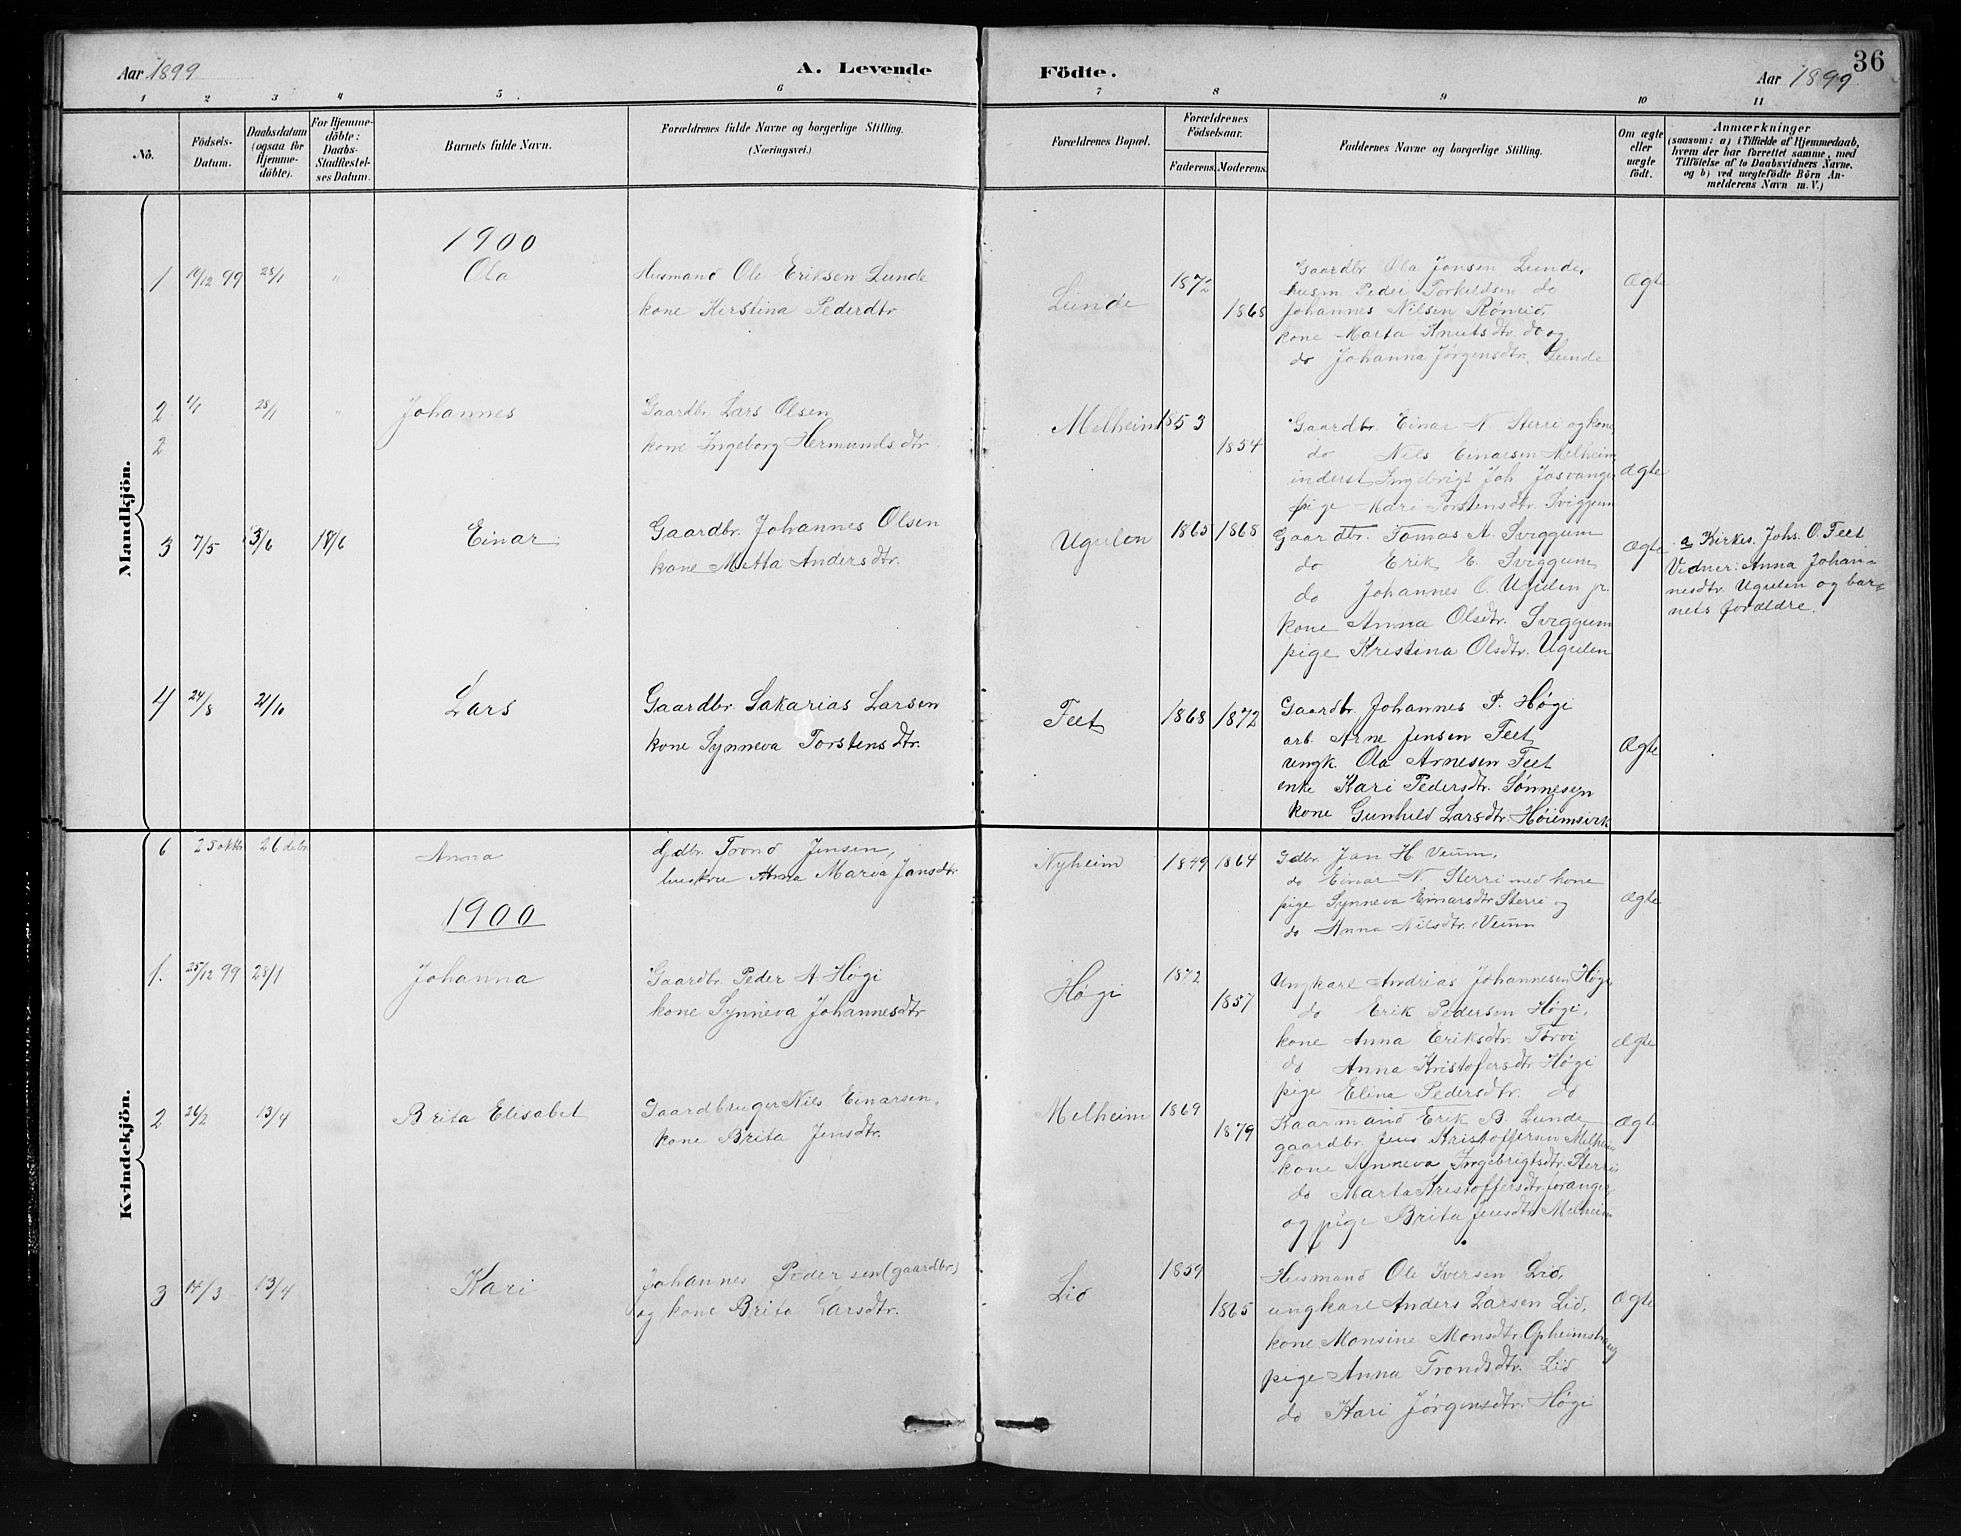 Aar 1899
A. Levende
Födte.
Aar 1899
36
1 2 3 4 5 6 7 8 9 10 11
No.
Födsels-
Datum.
Daabsdatum
(ogsaa for
Hjemme-
döbte).
For Hjemme-
döbte:
Daabs-
Stadfæstel-
ses Datum.
Barnets fulde Navn.
Forældrenes fulde Navne og borgerlige Stilling.
(Næringsvei.)
Forældrenes Bopæl.
Forældrenes
Födselsaar.
Faderens. Moderens.
Faddernes Navne og borgerlige Stilling.
Om ægte
eller
uægte
födt.
Anmærkninger
(saasom: a) i Tilfælde af Hjemmedaab,
hvem der har forrettet samme, med
Tilföielse af to Daabsvidners Navne,
og b) ved uægtefödte Börn An-
melderens Navn m. V.)
Mandkjön.
1900
1 /12 99 28/1 " Ola
Husmand Ole Eriksen Lunde
kone Kirstina Pederdtr
Lunde 1872 1868
Gaardbr Ola Jonsen Lunde,
husm. Peder Torkildsen do
Johannes Nilsen Røneid,
kone Marta Knutsdtr. do og
do Johanna Jørgensdtr. Lunde
Ægte
2 1/1 28/1 " Johannes
2
Gaardbr Lars Olsen
kone Ingeborg Hermundsdtr.
Melheim 1853 1854
Gaardbr Einar N Sterri og kone
do Nils Einarsen Melheim
inderst Ingebrigt Joh Josvanger
pige Mari Torstensdtr. Sviggum
ægte
3 7/5 3/6 18/6 Einar
Gaardbr. Johannes Olsen
kone Metta Andersdtr.
Ugulen 1865 1868
Gaardbr. Tomas A. Sviggum
do Erik E. Sviggum
do Johannes O. Ugulen jr.
kone Anna Olsdtr. Sviggum
pige Kristina Olsdtr. Ugulen
Ægte
a Kirkes. Johs. O. Feet
Vidner: Anna Johan-
nesdtr. Ugulen og bar-
nets forældre.
4 24/8 21/10 Lars
Gaardbr. Sakarias Larsen
kone Synneva Torstensdtr.
Feet 1868 1872
Gaardbr. Johannes P. Høgi
arb. Arne Jensen Feet
ungk. Ola Arnesen Feet
enke Kari Pedersdtr. Sønnesyn
kone Gunhild Larsdtr Høiemsvik
Ægte
Kvindekjön.
6 25 oktbr 26 debr Anna
Gdbr. Trond Jensen,
hustru Anna Maria Jansdtr
Nyheim 1849 1864
Gdbr. Jan H. Veum,
do Einar N. Sterri med kone
pige Synneva Einarsdtr Sterri og
do Anna Nilsdtr. Veum
Ægte
1900
1. 25/12 99 28/1 Johanna
Gaardbr. Peder A. Høgi
kone Synneva Johannesdtr
Høgi 1872 1857
Ungkarl Andrias Johannesen Høgi,
do Erik Pedersen Høgi,
kone Anna Eriksdtr. Torvi
do Anna Kristofersdtr Høgi
pige Elina Pedersdtr. do
Ægte
2 26/2 13/4 Brita Elisabet
Gaardbruger Nils Einarsen,
kone Brita Jensdtr.
Melheim 1869 1879
Kaarmand Erik B. Lunde
gaardbr. Jens Kristoffersen Melheim
kone Synneva Ingebrigtsdtr. Sterri
do Marta Kristoffersdtr.
og pige Brita Jensdtr. Melheim
Ægte
3 18/3 13/4 Kari
Johannes Pedersen (gaardbr)
og kone Brita Larsdtr.
Lid 1859 1865
Husmand Ole Iversen Lid,
ungkarl Anders Larsen Lid,
kone Monsine Monsdtr. Opheimshaug
pige Anna Trondsdtr. Lid
do Kari Jørgensdtr. Høgi
Ægte